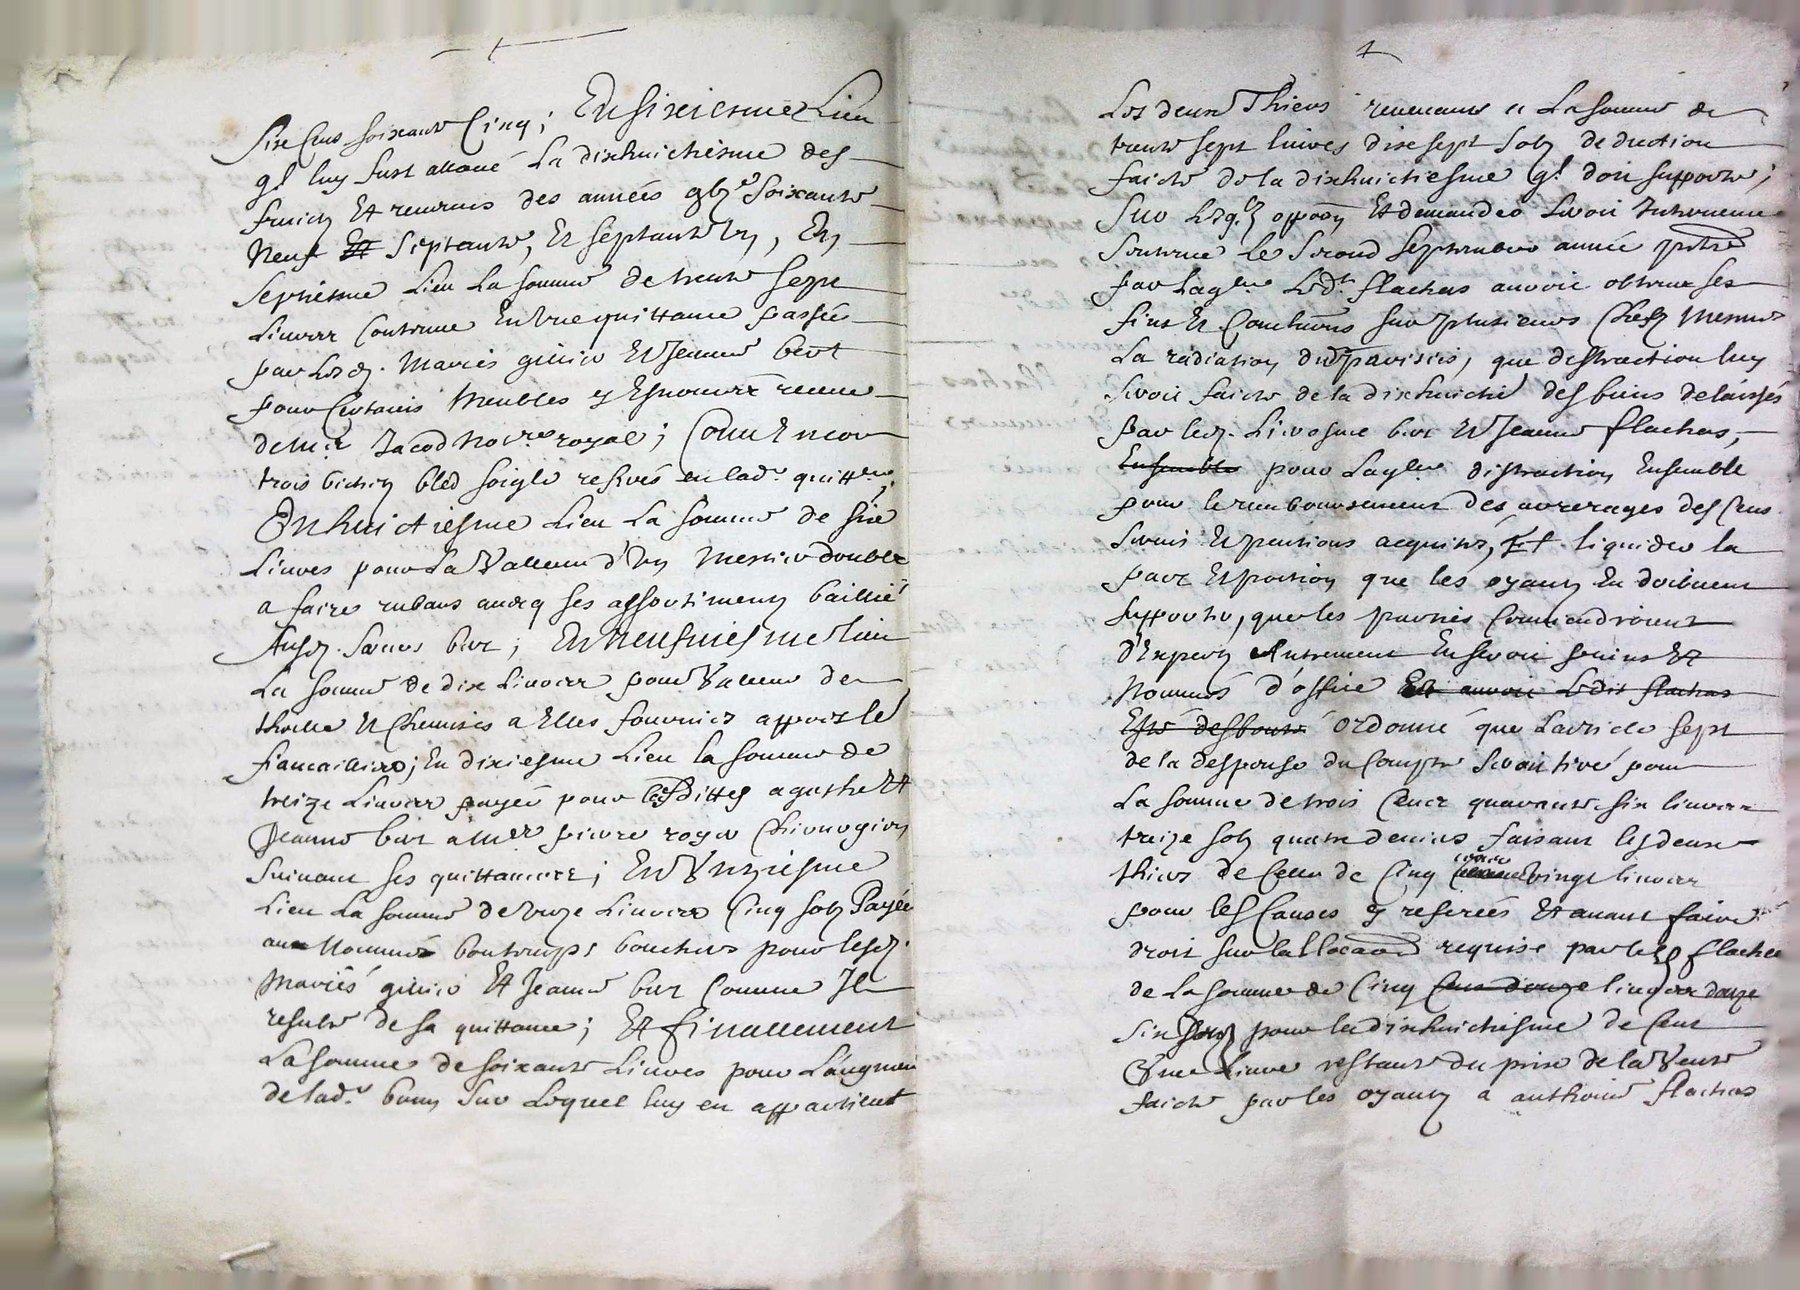 Six Cens soixante Cinq; En sixiesme Lieu
ql luy fust alloué La dixhuictiesme des
fruicts Et revenus des années soixante
Neuf Et Septante, Et septante Un, En
Septiesme Lieu La somme de trente sept
Livres Contenue En une quittance passée
par Lesd. Mariés Et Jeanne
pour Certains Meubles y Enoncez receue
de Me Jacod royal; Comm'Encor
trois bichets bled soigle reservés en lad.e quitt.ce
En huictiesme Lieu La somme de six
Livres pour La Valleur d'Un Mestier double
a faire rubans avecq ses assortiments baillié
Ausd. ; En Neufviesme Lieu
La somme de dix Livres pour Valleur de
thoille Et Chemises a Elles fournies
fiancailles; En dixiesme Lieu la somme de
treize Livres payée pour Lesdittes agathe Et
Jeanne a Me pierre royer Chirurgien
Suivant ses quittances; En Unziesme
Lieu La somme de Unze Livres Cinq sols Payée
au Nommé bouchers pour lesd.
Mariés Et Jeanne Comme Il
resulte de sa quittance; Et finallement
La somme de soixante Livres pour L'augment
de lad.e Sur Lequel luy en appartient
Les deux Thiers revenants a La somme de
trente sept livres dixsept Sols deduction
faicte de la dixhuictiesme ql doit supporter;
Sur Et demandes Intervenue
Sentence le Second Septembre année
par Laq.lle Led.t flachas auroit obtenu ses
fins Et Conclusions sur plusieurs Chefs Mesme
La radiation, que destraction luy
Seroit faicte de la dixhuictie des biens delaissés
par led. Et Jeanne flachas,
Ensemble pour Laq.lle distraction Ensemble
pour le remboursement des arrerages des Cens
Servis Et pentions acquités, Et liquider la
part Et portion que les oyants En doibvent
supporter, que les parties Conviendroient
d'Experts Autrement En seroit prins Et
Nommés d'office Et auroit Ledit flachas
Esté desbouté ordonné que L'article sept
de la despense du Compte Seroit tiré pour
La somme de trois Cent quarante six livres
treize sols quatre deniers faisant les deux
thiers de Celle de Cinq Cent vingt livres
pour les Causes y referées Et avant faire
droit sur la requise par led flachas
de La somme de Cinq Cens douze livres douze
Six sols pour la dixhuictiesme de Cent
Une Livre restante du prix de la Vente
faicte par les oyants a anthoine flachas